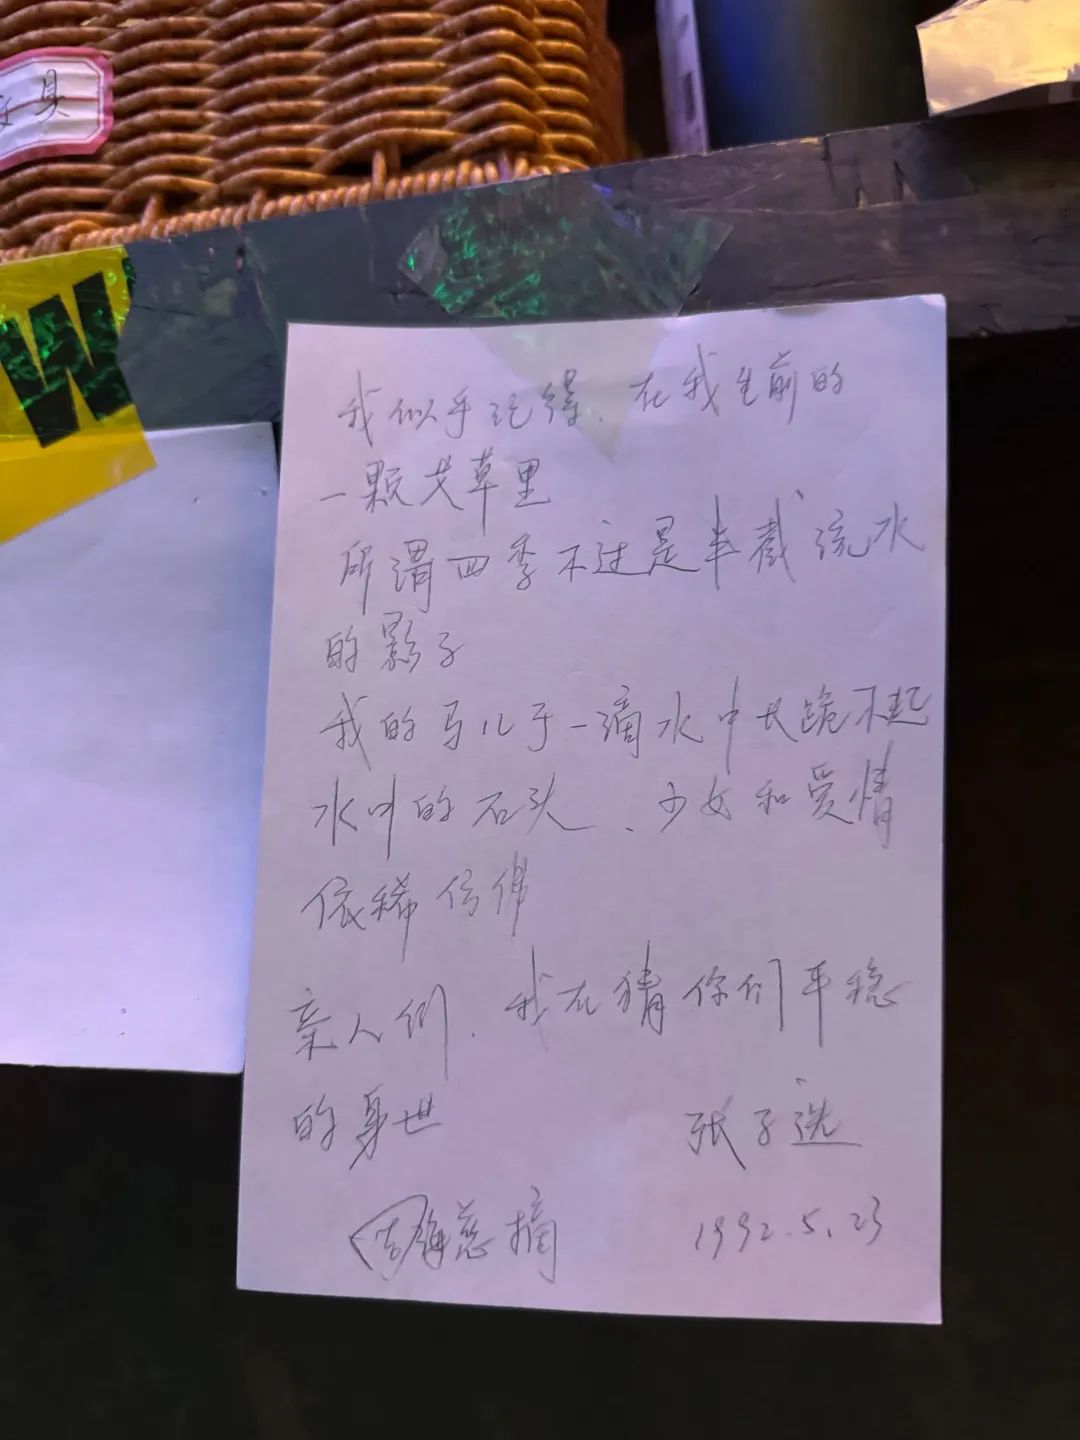 具
W
我似乎记得，在我生前的
一颗艾草里
所谓四季不过是半截流水
的影子
我的马儿于一滴水中长跪不起
水中的石头、少女和爱情
依稀仿佛
亲人们，我在猜你们平稳
的身世
张子选
周海慈摘
1992.5.23